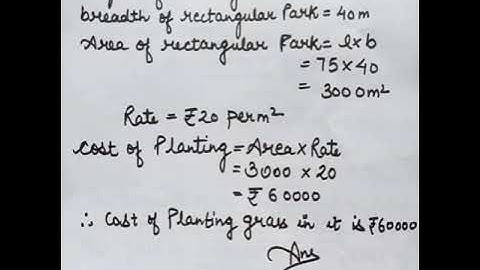 breadth of rectangular Park = 40m
Area of rectangular Park = l×b
= 75×40
= 3000m²
Rate = ₹20 per m²
Cost of Planting = Area×Rate
= 3000 × 20
= ₹60000
∴ Cost of Planting grass in it is ₹60000
Ans